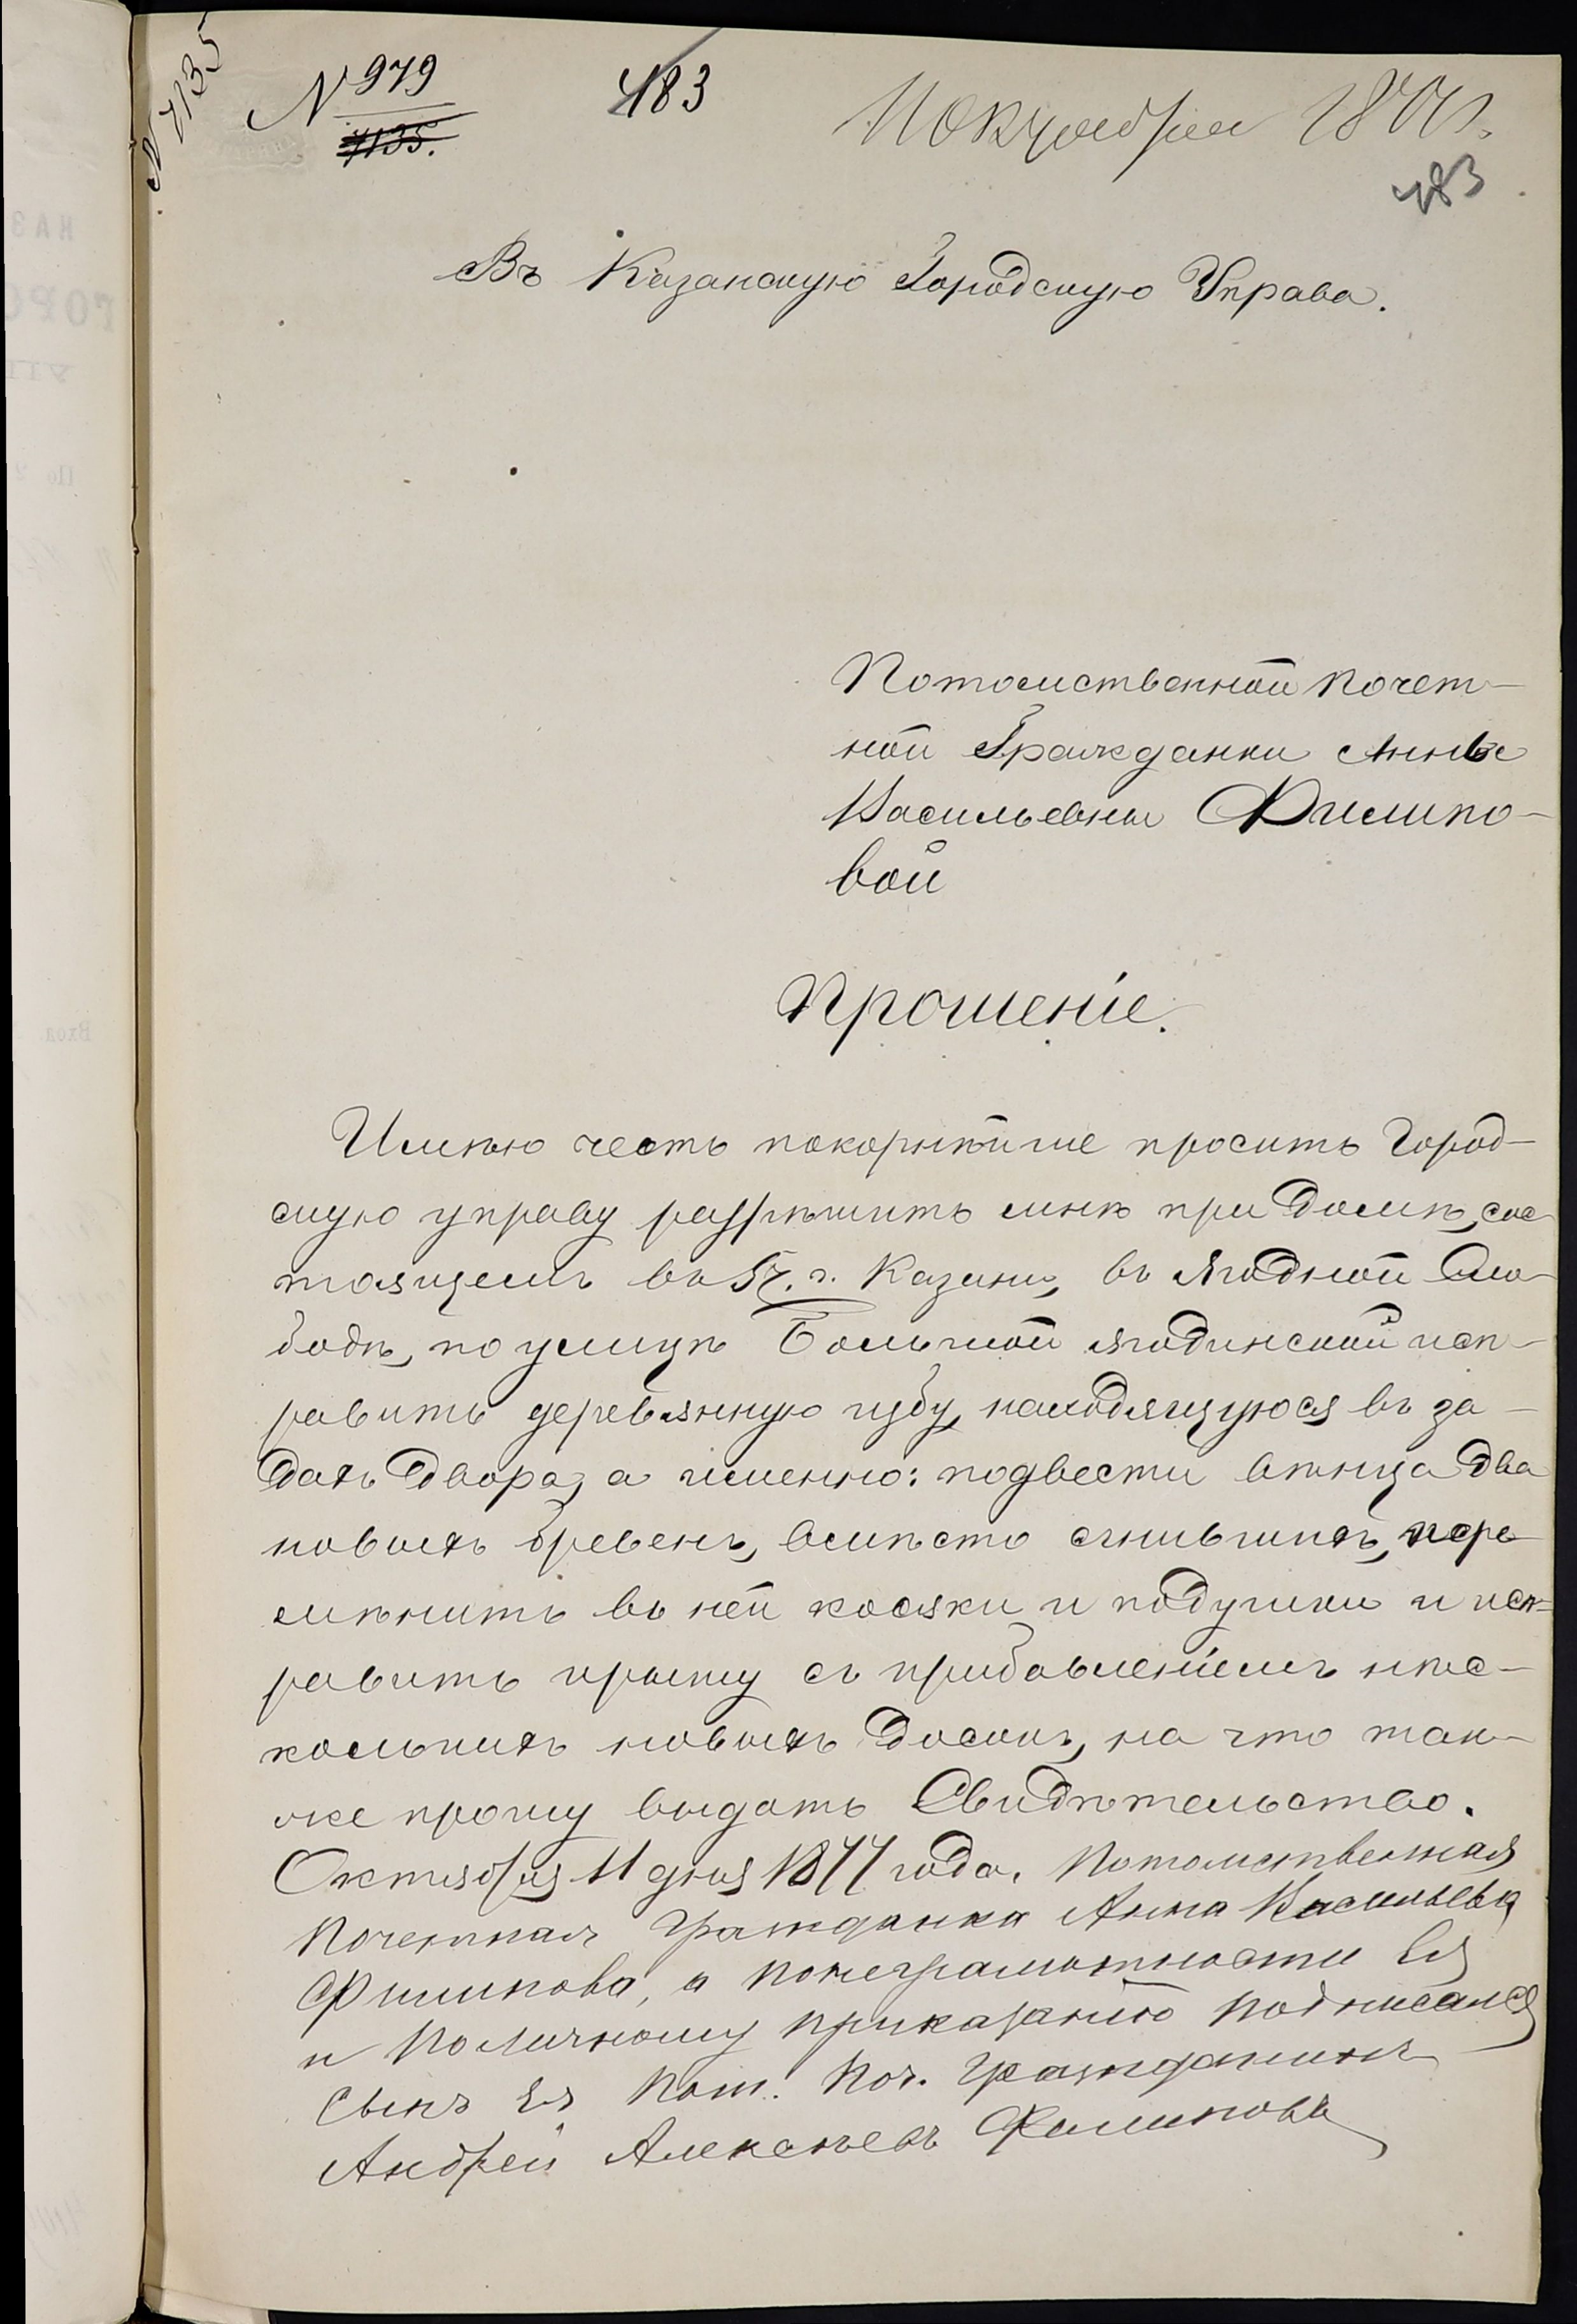 N 7135
N 979
7135.
483
11 Октября 1877 г.
483
Въ Казанскую Городскую Управа.
Потомственной Почет-
ной Гражданки Анны
Васильевны Филипо-
вой
Прошеніе.
Имѣю честь покорнѣйше просить Город-
скую управу разрѣшить мнѣ при домѣ, сос
тоящемъ въ 5 ч. г. Казани, въ Ягодной Сло-
бодѣ, по улицѣ Большой Ягодинской исп-
равить деревянную избу, находящуюся въ за-
дахъ двора, а именно: подвести вѣнца два
новыхъ бревенъ, вмѣсто сгнившихъ, пере-
мѣнить въ ней косяки и подушки и исп=
равить крышу съ прибавленіемъ нѣс-
колькихъ новыхъ досокъ, на что так-
же прошу выдать Свидѣтельство.
Октября 11 дня 1877 года. Потомственная
Почетная Гражданка Анна Васильева
Филипова, а понеграмотности Ея
и Поличному приказанію подписался
Сынъ Ея Пот. Поч. Гражданинъ
Андрей Алексѣевъ Филиповъ